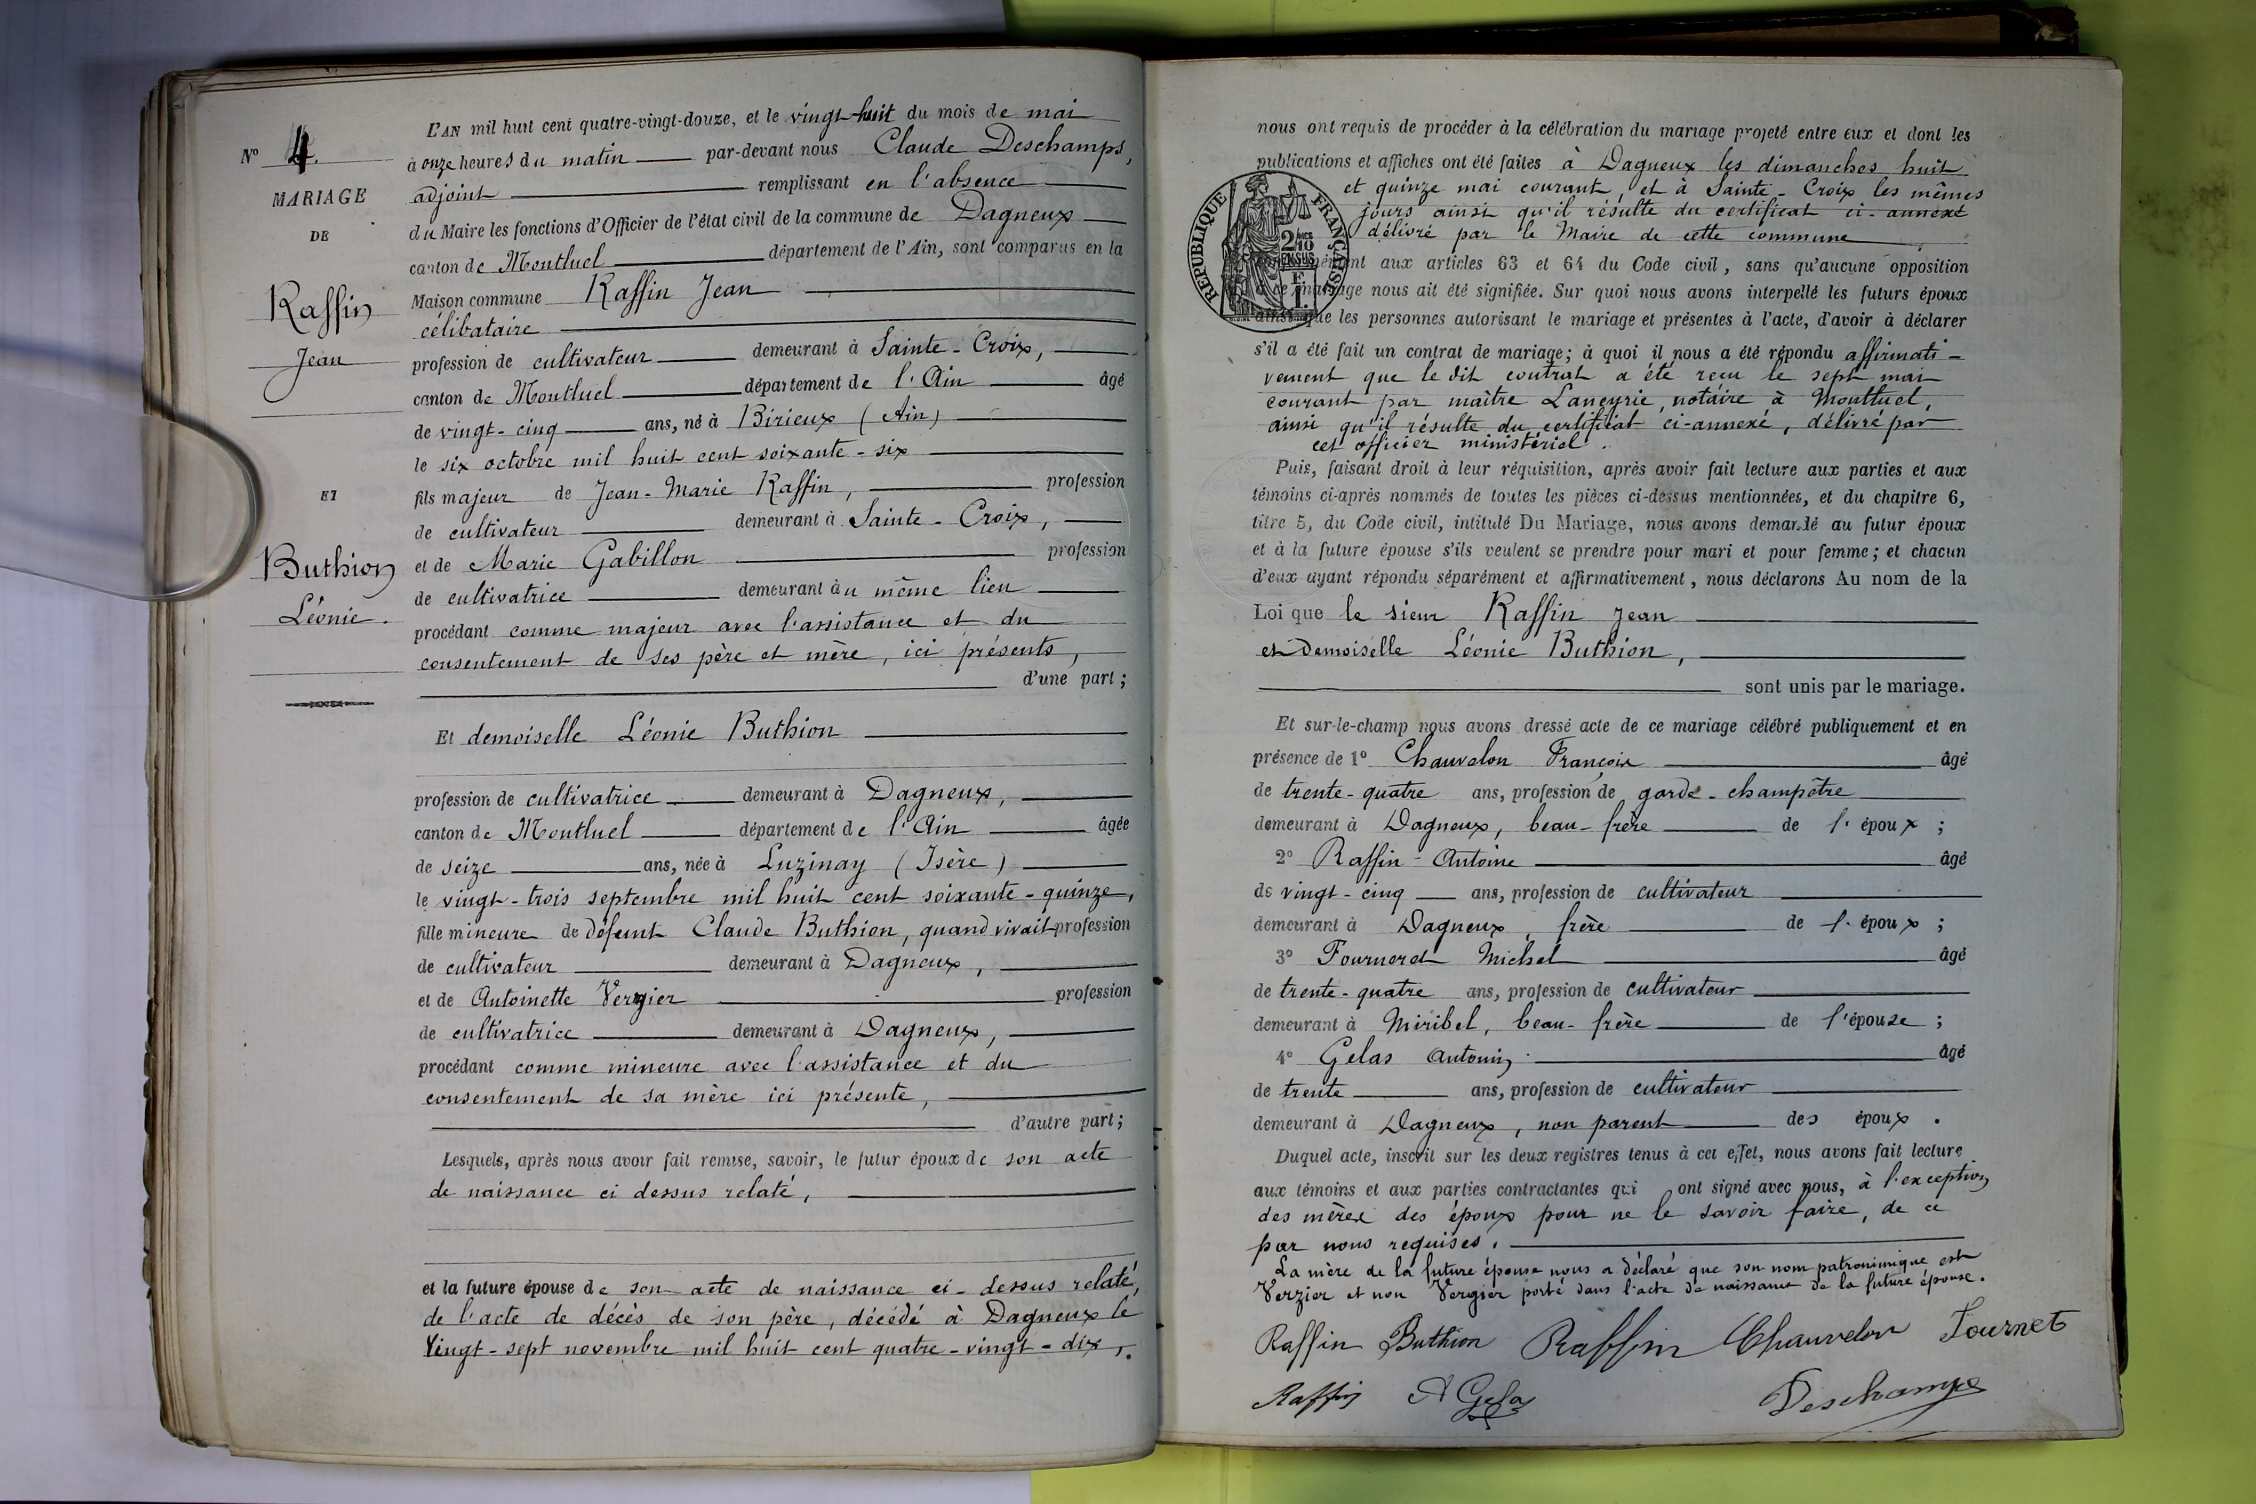 L'AN mil huit cent quatre-vingt-douze, et le vingt-huit du mois de mai
N° 4. à onze heures du matin par-devant nous Claude Deschamps,
MARIAGE adjoint remplissant en l'absence
DE du Maire les fonctions d'Officier de l'état civil de la commune de Dagneux
canton de Montluel département de l'Ain, sont comparus en la
Raffin Maison commune Raffin Jean
célibataire
Jean profession de cultivateur demeurant à Sainte-Croix,
canton de Montluel département de l'Ain âgé
de vingt-cinq ans, né à Birieux (Ain)
le six octobre mil huit cent soixante-six
ET fils majeur de Jean-Marie Raffin, profession
de cultivateur demeurant à Sainte-Croix,
Buthion et de Marie Gabillon profession
de cultivatrice demeurant au même lieu
Léonie. procédant comme majeur avec l'assistance et du
consentement de ses père et mère, ici présents,
d'une part;
Et demoiselle Léonie Buthion
profession de cultivatrice demeurant à Dagneux,
canton de Montluel département de l'Ain âgée
de seize ans, née à Luzinay (Isère)
le vingt-trois septembre mil huit cent soixante-quinze,
fille mineure de défunt Claude Buthion, quand vivait profession
de cultivateur demeurant à Dagneux,
et de Antoinette Verzier profession
de cultivatrice demeurant à Dagneux,
procédant comme mineure avec l'assistance et du
consentement de sa mère ici présente,
d'autre part;
Lesquels, après nous avoir fait remise, savoir, le futur époux de son acte
de naissance ci dessus relaté,
et la future épouse de son acte de naissance ci-dessus relaté,
de l'acte de décès de son père, décédé à Dagneux le
Vingt-sept novembre mil huit cent quatre-vingt-dix,.
nous ont requis de procéder à la célébration du mariage projeté entre eux et dont les
publications et affiches ont été faites à Dagneux les dimanches huit
et quinze mai courant, et à Sainte-Croix les mêmes
jours ainsi qu'il résulte du certificat ci-annexé
délivré par le Maire de cette commune
aux articles 63 et 64 du Code civil, sans qu'aucune opposition
à ce mariage nous ait été signifiée. Sur quoi nous avons interpellé les futurs époux
ainsi que les personnes autorisant le mariage et présentes à l'acte, d'avoir à déclarer
RÉPUBLIQUE FRANÇAISE
s'il a été fait un contrat de mariage; à quoi il nous a été répondu affirmati-
vement que le dit contrat a été reçu le sept mai
courant par maître Laneyrie, notaire à Montluel,
ainsi qu'il résulte du certificat ci-annexé, délivré par
cet officier ministériel.
Puis, faisant droit à leur réquisition, après avoir fait lecture aux parties et aux
témoins ci-après nommés de toutes les pièces ci-dessus mentionnées, et du chapitre 6,
titre 5, du Code civil, intitulé Du Mariage, nous avons demandé au futur époux
et à la future épouse s'ils veulent se prendre pour mari et pour femme; et chacun
d'eux ayant répondu séparément et affirmativement, nous déclarons Au nom de la
Loi que le sieur Raffin Jean
et Demoiselle Léonie Buthion,
sont unis par le mariage.
Et sur-le-champ nous avons dressé acte de ce mariage célébré publiquement et en
présence de 1° Chauvelon François âgé
de trente-quatre ans, profession de garde-champêtre
demeurant à Dagneux, beau-frère de l'époux;
2° Raffin Antoine âgé
de vingt-cinq ans, profession de cultivateur
demeurant à Dagneux, frère de l'époux;
3° Michel âgé
de trente-quatre ans, profession de cultivateur
demeurant à Miribel, beau-frère de l'épouse;
4° Gelas Antonin âgé
de trente ans, profession de cultivateur
demeurant à Dagneux, non parent des époux.
Duquel acte, inscrit sur les deux registres tenus à cet effet, nous avons fait lecture
aux témoins et aux parties contractantes qui ont signé avec nous, à l'exception
des mères des époux pour ne le savoir faire, de ce
par nous requises.
La mère de la future épouse nous a déclaré que son nom patronimique est
Verzier et non Vergier porté dans l'acte de naissance de la future épouse.
Raffin Buthion Raffin Chauvelon Fournet
Raffin A Gelas Deschamps